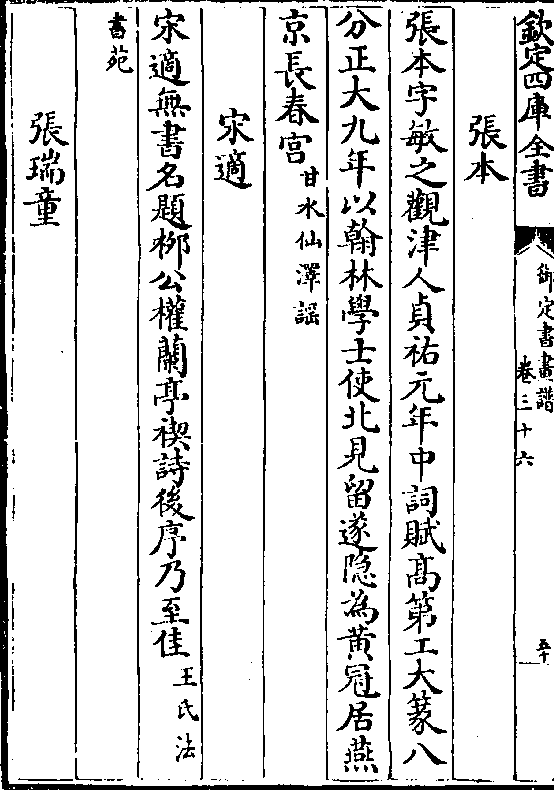 欽定四庫全書
御定書畫譜
卷三十六
五十一
張本
張本字敏之觀津人貞祐元年中詞賦高第工大篆八
分正大九年以翰林學士使北見留遂隐為黄冠居燕
京長春宫甘水仙源謡
宋適
宋適無書名題栁公權蘭亭禊詩後序乃至佳王氏法
書苑
張瑞童